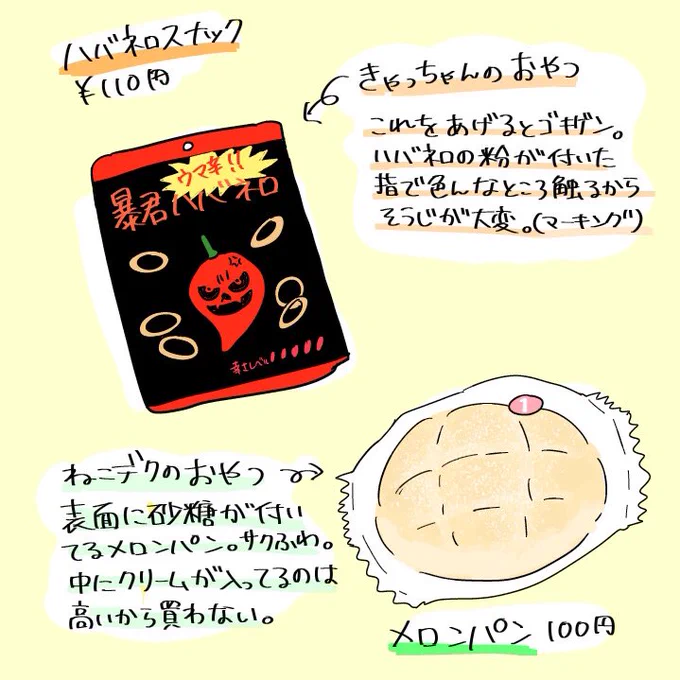 ハバネロスナック
¥110円
きゃっちゃんのおやつ
これをあげるとゴキゲン。
ハバネロの粉が付いた
指で色んなところ触るから
そうじが大変。(マーキング)
ウマ辛!!
暴君ハバネロ
辛さレベル
1
ねこデクのおやつ
表面に砂糖が付い
てるメロンパン。サクふわ。
中にクリームが入ってるのは
高いから買わない。
メロンパン 100円